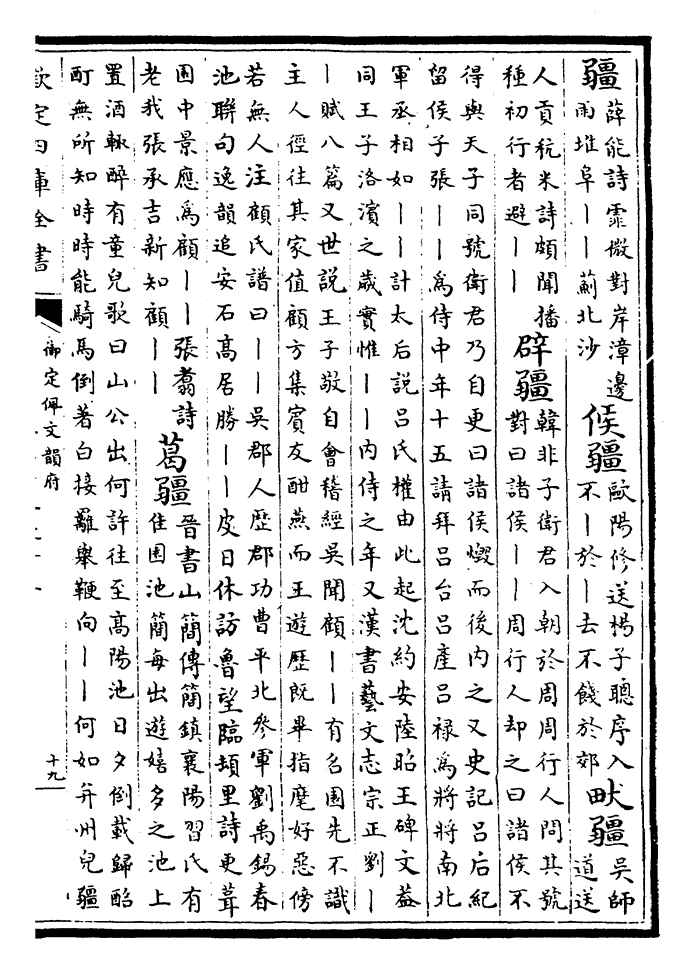 疆
薛能詩霏微對岸漳邊
雨堆阜丨丨薊北沙
候疆
歐陽修送楊子聰序入
不丨於丨去不餞於郊
畎疆
吳師
道送
人貢杭米詩頗聞播
種初行者避丨丨
辟疆
韓非子衛君入朝於周周行人問其號
對曰諸侯丨丨周行人却之曰諸侯不
得與天子同號衛君乃自更曰諸侯燬而後内之又史記吕后紀
留侯子張丨丨為侍中年十五請拜吕台吕產吕禄為將將南北
軍丞相如丨丨計太后説吕氏權由此起沈約安陸昭王碑文葢
同王子洛濱之歲實惟丨丨内侍之年又漢書藝文志宗正劉丨
丨賦八篇又世説王子敬自會稽經吳聞顧丨丨有名園先不識
主人徑往其家值顧方集賓友酣燕而王遊歴既畢指麾好惡傍
若無人注顧氏譜曰丨丨吳郡人歴郡功曹平北參軍劉禹錫春
池聯句逸韻追安石高居勝丨丨皮日休訪魯望臨頓里詩更葺
園中景應為顧丨丨張翥詩
老我張承吉新知顧丨丨
葛疆
晉書山簡傳簡鎮襄陽習氏有
佳園池簡每出遊嬉多之池上
置酒輒醉有童兒歌曰山公出何許往至高陽池日夕倒載歸酩
酊無所知時時能騎馬倒著白接䍦舉鞭向丨丨何如并州兒疆
欽定四庫全書
御定佩文韻府
十九